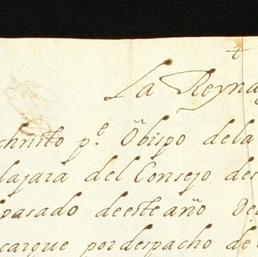 La Reyna
christo pe. Obispo de la
lajara del Consejo de
pasado deeste año de
cargue por despacho de